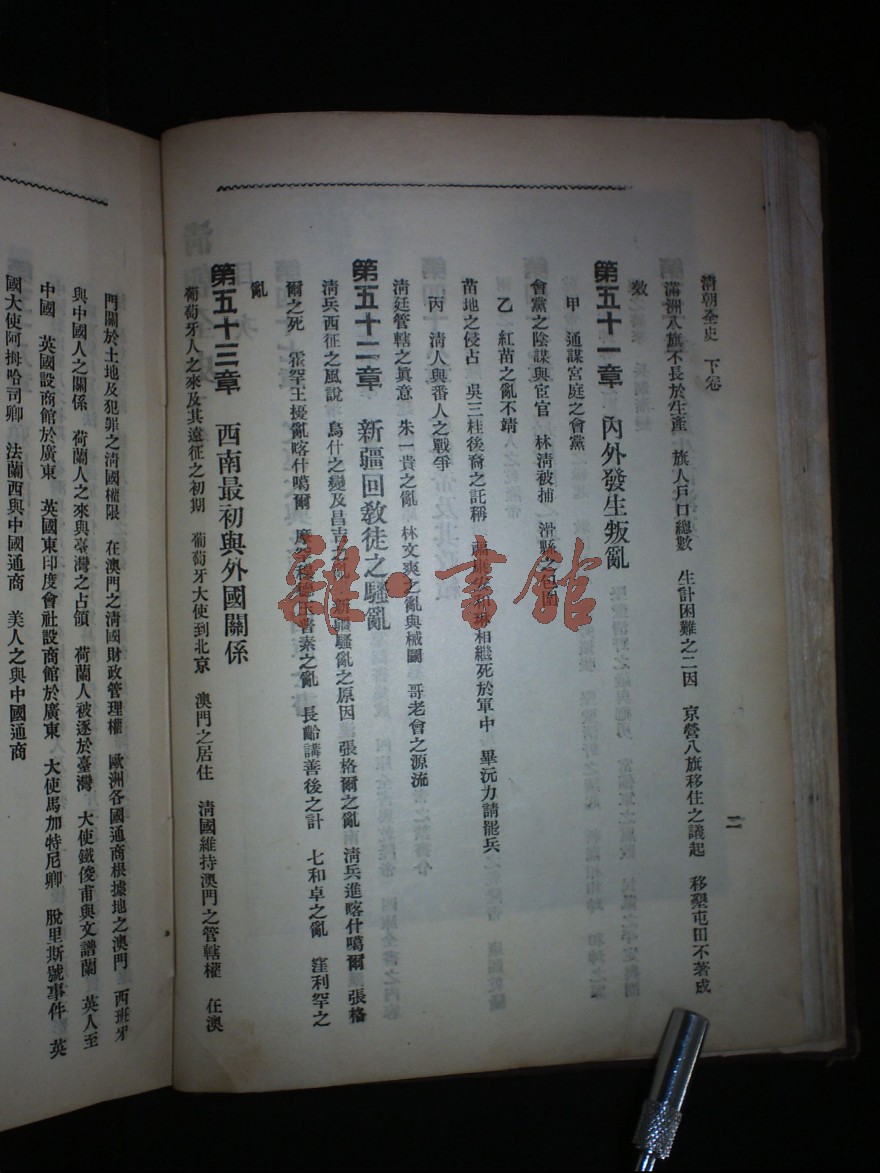 清朝全史 下卷
二
滿洲八旗不長於生產 旗人戶口總數 生計困難之二因 京營八旗移住之議起 移墾屯田不著成
效
第五十一章 內外發生叛亂
甲 通謀宮庭之會黨
會黨之陰謀與宦官 林清被捕 滑縣之包圍
乙 紅苗之亂不靖
苗地之侵占 吳三桂後裔之託稱 和琳相繼死於軍中 畢沅力請罷兵
丙 清人與番人之戰爭
清廷管轄之眞意 朱一貴之亂 林文爽之亂與械鬭 哥老會之源流
第五十二章 新疆回敎徒之騷亂
清兵西征之風說 烏什之變及昌吉之亂 新疆騷亂之原因 張格爾之亂 清兵進喀什噶爾 張格
爾之死 霍罕王擾亂喀什噶爾 普素之亂 長齡講善後之計 七和卓之亂 窪利罕之
亂
第五十三章 西南最初與外國關係
葡萄牙人之來及其遠征之初期 葡萄牙大使到北京 澳門之居住 清國維持澳門之管轄權 在澳
門關於土地及犯罪之清國權限 在澳門之清國財政管理權 歐洲各國通商根據地之澳門 西班牙
與中國人之關係 荷蘭人之來與臺灣之占領 荷蘭人被逐於臺灣 大使鐵俊甫與文譜蘭 英人至
中國 英國設商館於廣東 英國東印度會社設商館於廣東 大使馬加特尼卿 脫里斯號事件 英
國大使阿拇哈司卿 法蘭西與中國通商 美人之與中國通商
雜·書館